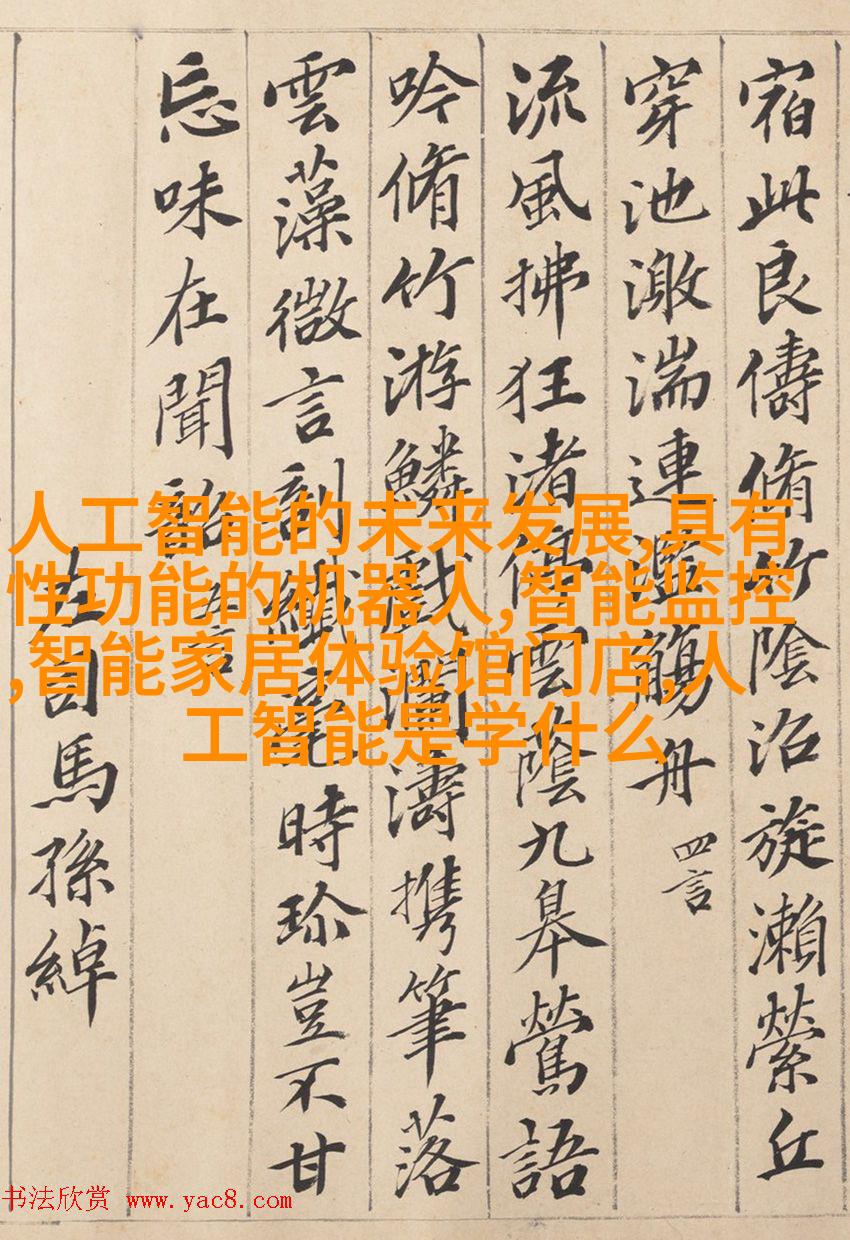 宿此良儔脩竹陰沼旋瀨縈丘
穿池激湍連濫觴舟 四言
流風拂狂渚停雲蔭九皋鶯語
吟脩竹游鱗戲瀾濤携筆落
雲藻微言剖纖毫時珎豈不甘
忘味在聞韶 五言
左司馬孫綽
人工智能的未来发展,具有
性功能的机器人,智能监控
,智能家居体验馆门店,人
工智能是学什么
书法欣赏 www.yac8.com